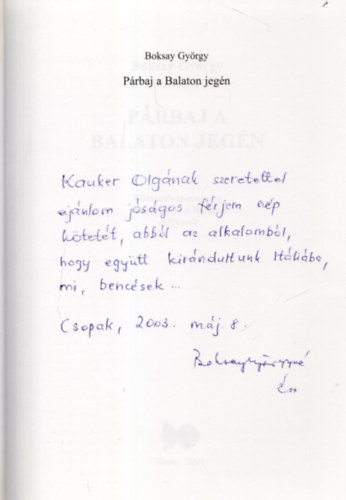 Boksay György
Párbaj a Balaton jegén
PÁRBAJ A
BALATON JEGÉN
Kauker Olgának szeretettel
ajánlom jóságos férjem nép
kötetét, abból az alkalomból,
hogy együtt kirándultunk Itáliába,
mi, bencések ...
Csopak, 2003. máj. 8.
Boksay Györgyné